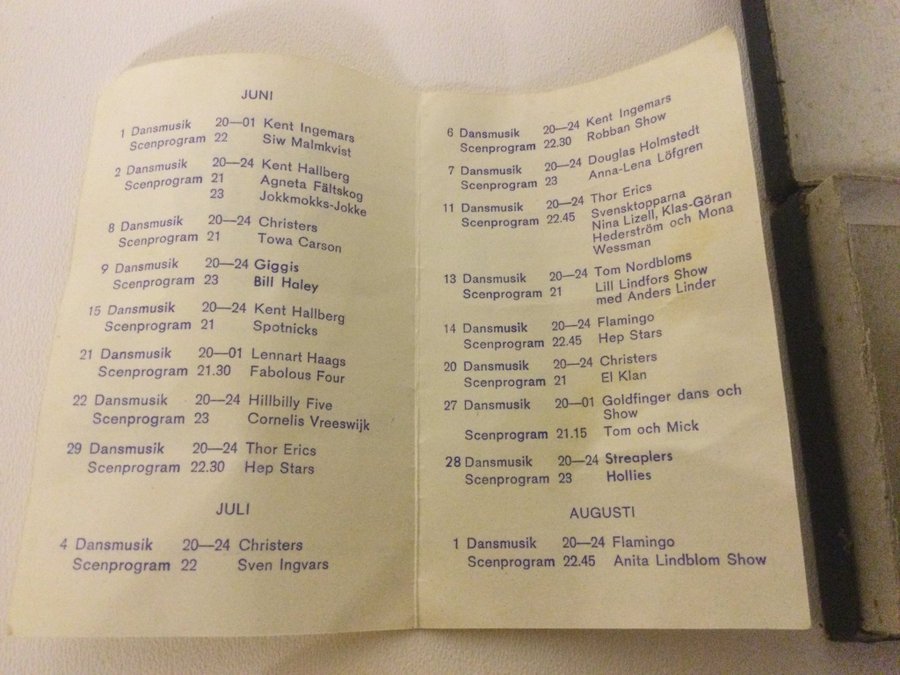 JUNI
1 Dansmusik 20—01 Kent Ingemars
Scenprogram 22 Siw Malmkvist
2 Dansmusik 20—24 Kent Hallberg
Scenprogram 21 Agneta Fältskog
23 Jokkmokks-Jokke
8 Dansmusik 20—24 Christers
Scenprogram 21 Towa Carson
9 Dansmusik 20—24 Giggis
Scenprogram 23 Bill Haley
15 Dansmusik 20—24 Kent Hallberg
Scenprogram 21 Spotnicks
21 Dansmusik 20—01 Lennart Haags
Scenprogram 21.30 Fabolous Four
22 Dansmusik 20—24 Hillbilly Five
Scenprogram 23 Cornelis Vreeswijk
29 Dansmusik 20—24 Thor Erics
Scenprogram 22.30 Hep Stars
JULI
4 Dansmusik 20—24 Christers
Scenprogram 22 Sven Ingvars
6 Dansmusik 20—24 Kent Ingemars
Scenprogram 22.30 Robban Show
7 Dansmusik 20—24 Douglas Holmstedt
Scenprogram 23 Anna-Lena Löfgren
11 Dansmusik 20—24 Thor Erics
Scenprogram 22.45 Svensktopparna
Nina Lizell, Klas-Göran
Hederström och Mona
Wessman
13 Dansmusik 20—24 Tom Nordbloms
Scenprogram 21 Lill Lindfors Show
med Anders Linder
14 Dansmusik 20—24 Flamingo
Scenprogram 22.45 Hep Stars
20 Dansmusik 20—24 Christers
Scenprogram 21 El Klan
27 Dansmusik 20—01 Goldfinger dans och
Show
Scenprogram 21.15 Tom och Mick
28 Dansmusik 20—24 Streaplers
Scenprogram 23 Hollies
AUGUSTI
1 Dansmusik 20—24 Flamingo
Scenprogram 22.45 Anita Lindblom Show